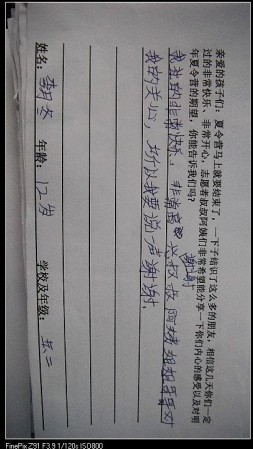 亲爱的孩子们：夏令营马上就要结束了，一下子结识了这么多的朋友，相信这几天你们一定
过的非常快乐、非常开心，志愿者叔叔阿姨们非常希望能分享一下你们内心的感受以及对明
年夏令营的期望，你能告诉我们吗？
我玩的非常快乐，非常高兴
谢谢叔叔阿姨
哥哥对
我的关心，所以我要说一声谢谢，
姓名：
冬 年龄：12岁 学校及年级：
FinePix Z91 F3.9 1/120s ISO800